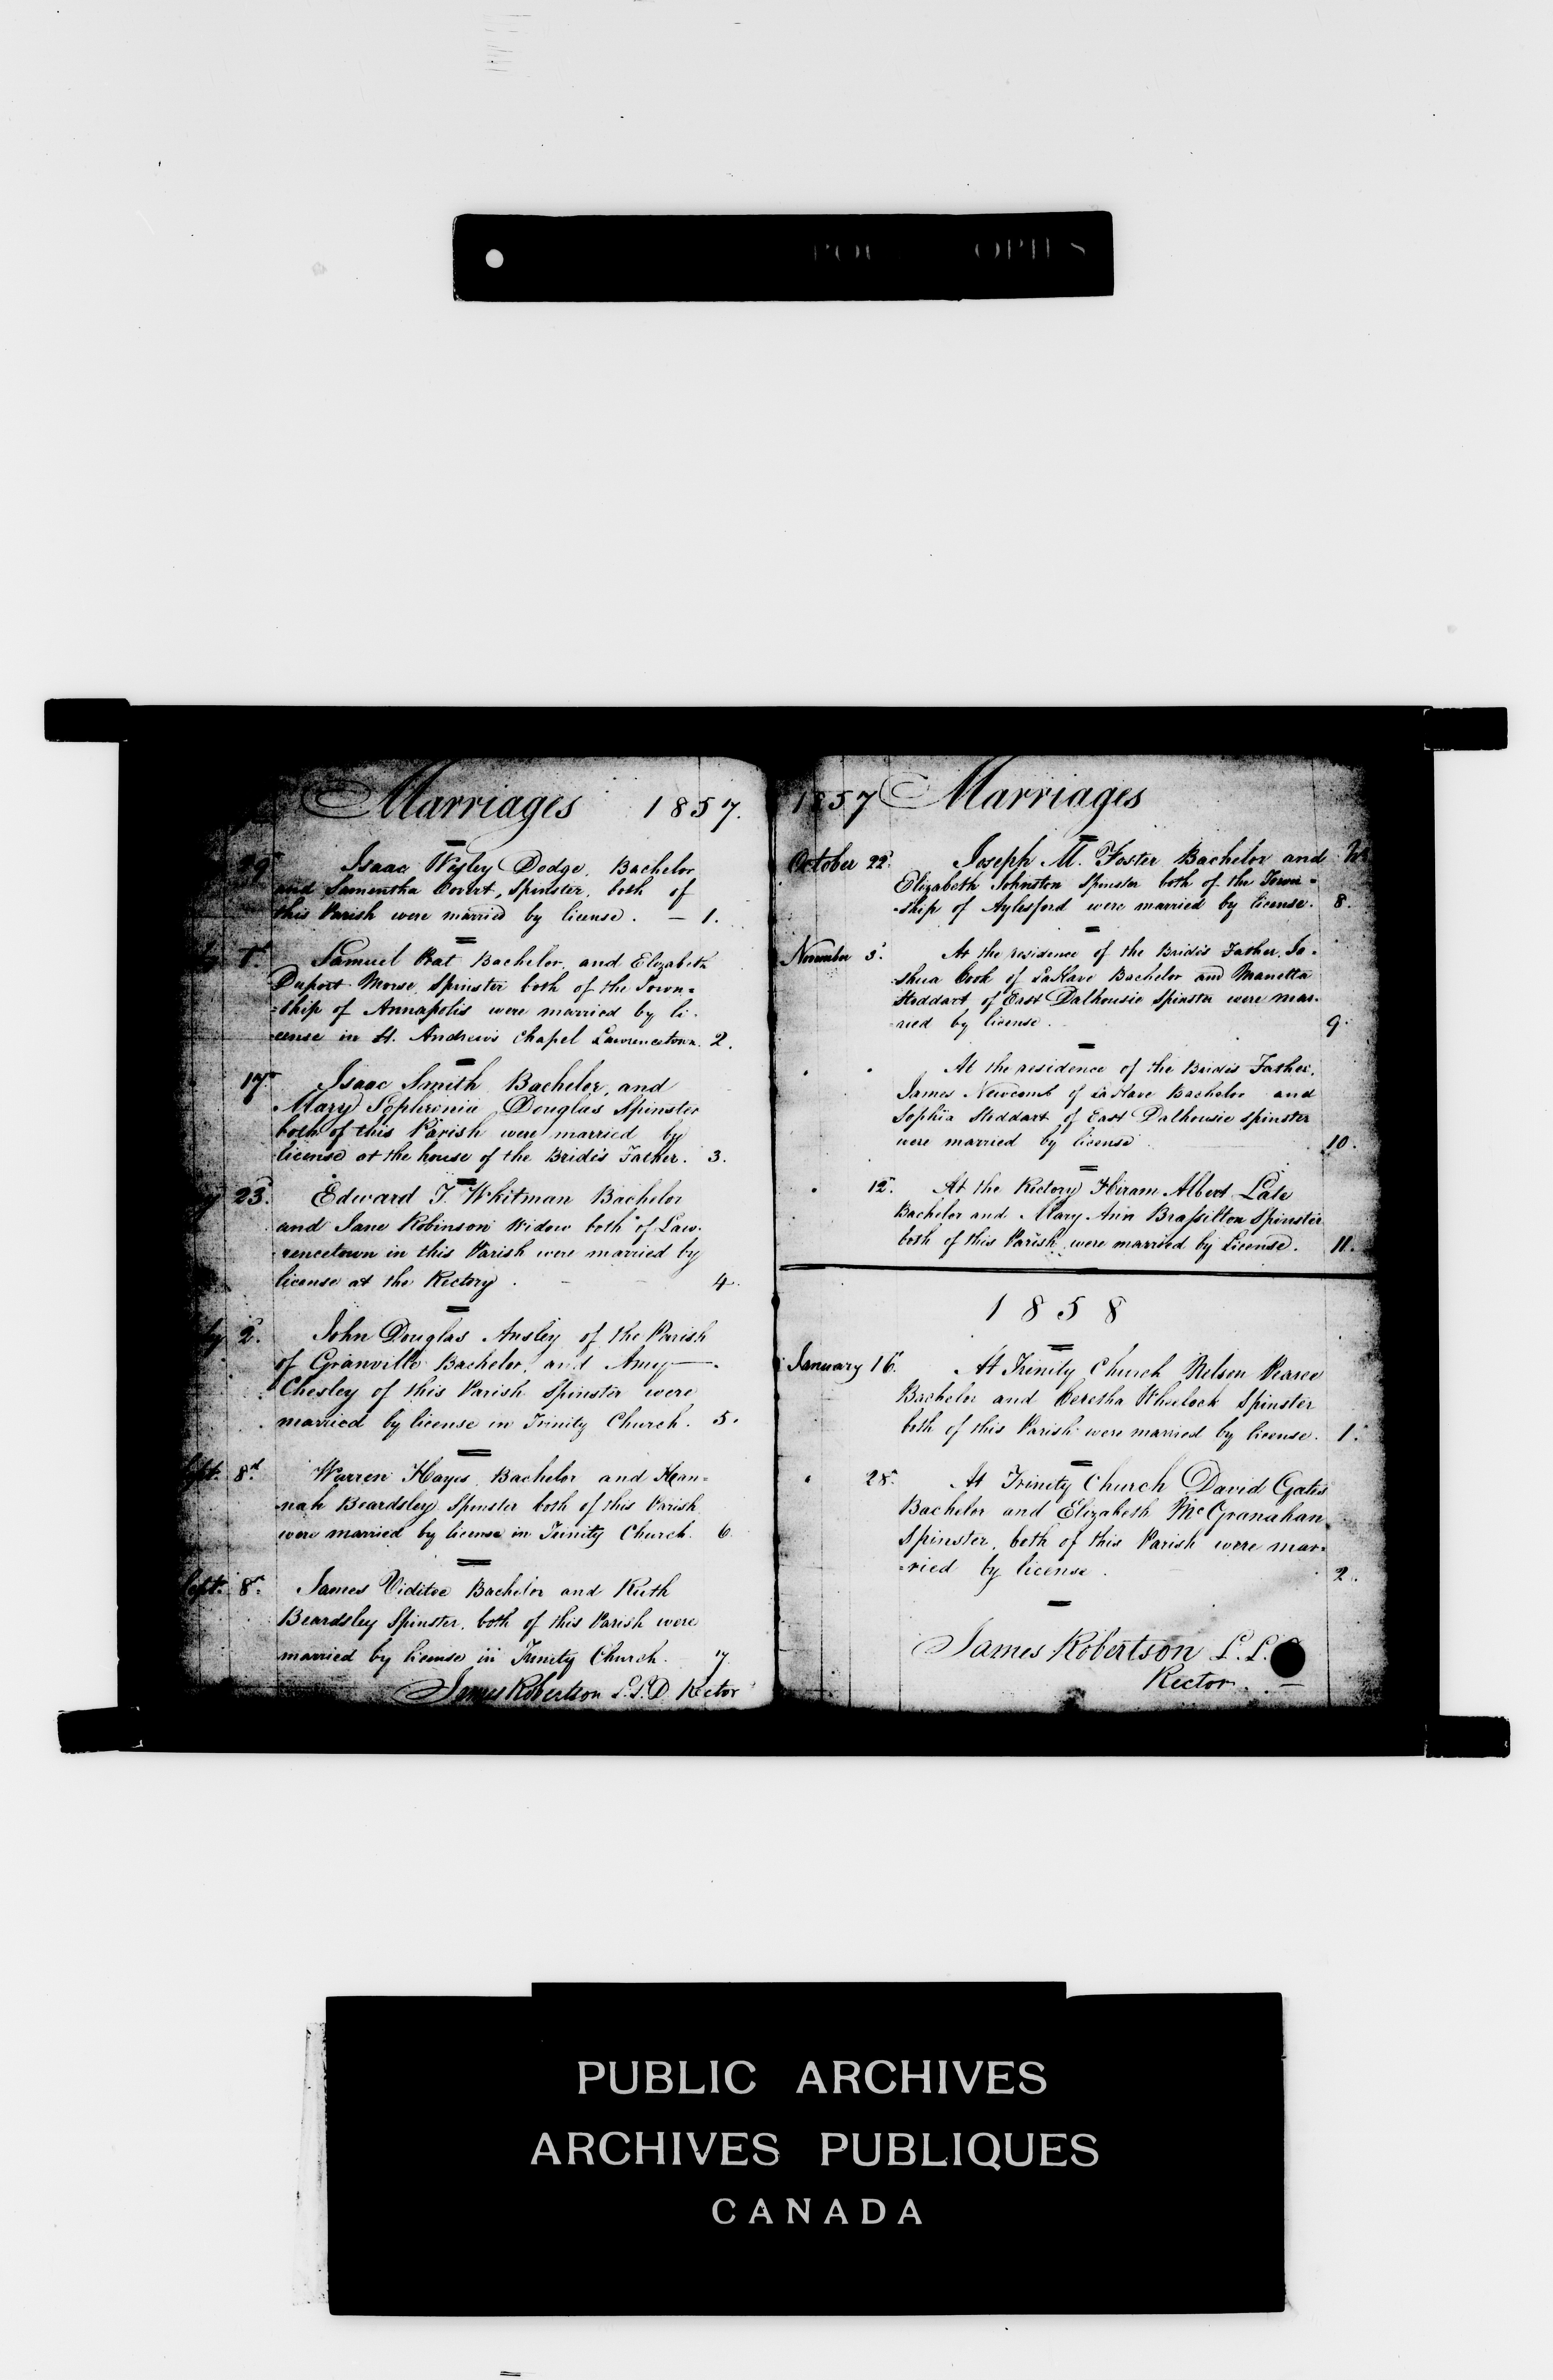 Marriages 1857.
29
Isaac Wesley Dodge, Bachelor
and Samantha Covert, Spinster, both of
this Parish were married by license. — 1.
Samuel Prat Bachelor, and Elizabeth
Duport Morse Spinster both of the Town=
=ship of Annapolis were married by li-
cense in St. Andrew's Chapel Lawrencetown. 2.
17th Isaac Smith, Bachelor, and
Mary Sophronia Douglas Spinster
both of this Parish were married by
license at the house of the Bride's Father. 3.
23. Edward F. Whitman Bachelor
and Jane Robinson Widow both of Law-
rencetown in this Parish were married by
license at the Rectory. 4.
2. John Douglas Ansley of the Parish
of Granville Bachelor, and Amy —
Chesley of this Parish Spinster were
married by license in Trinity Church. 5.
Sept. 8th Warren Hayes Bachelor and Han=
nah Beardsley Spinster both of this Parish
were married by license in Trinity Church. 6.
Sept. 8th James Viditoe Bachelor and Ruth
Beardsley Spinster, both of this Parish were
married by license in Trinity Church. 7.
James Robertson L.L.D. Rector
1857 Marriages
October 22d Joseph M. Foster Bachelor and
Elizabeth Johnston Spinster both of the Town=
=ship of Aylesford were married by license. 8.
November 3d At the residence of the Bride's Father, Jo-
shua Cook of LaHave Bachelor and Manetta
Stoddart of East Dalhousie Spinster were mar-
ried by license. 9.
" " At the residence of the Bride's Father,
James Newcomb of LaHave Bachelor and
Sophia Stoddart of East Dalhousie Spinster
were married by license 10.
" 12th At the Rectory Hiram Albert Late
Bachelor and Mary Ann Brassilton Spinster
both of this Parish were married by License. 11.
1858
January 16. At Trinity Church Nelson Pearce
Bachelor and Beretha Wheelock Spinster
both of this Parish were married by license. 1.
" 28th At Trinity Church David Gates
Bachelor and Elizabeth McGranahan
Spinster, both of this Parish were mar-
ried by license. 2.
James Robertson L.L.
Rector.
PUBLIC ARCHIVES
ARCHIVES PUBLIQUES
CANADA